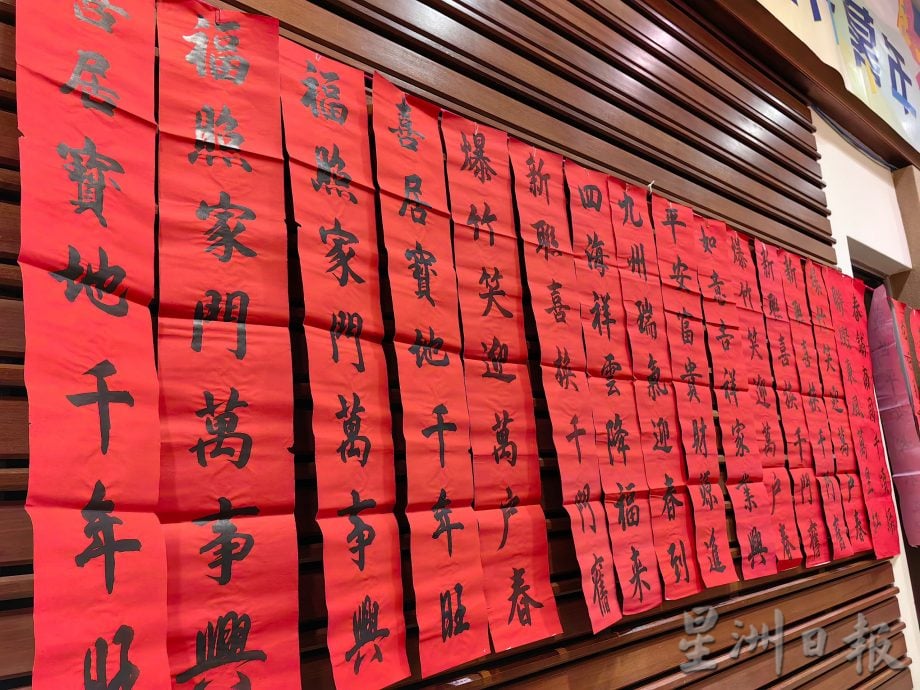 喜居寶地千年旺
福照家門萬事興
福照家門萬事興
喜居寶地千年旺
爆竹笑迎萬户春
新聯喜換千門舊
四海祥雲降福來
九州瑞氣迎春到
平安富貴財源進
如意吉祥家業興
爆竹笑迎萬户春
新聯喜換千門舊
新聯喜換千門舊
爆竹笑迎萬户春
春
星洲日報